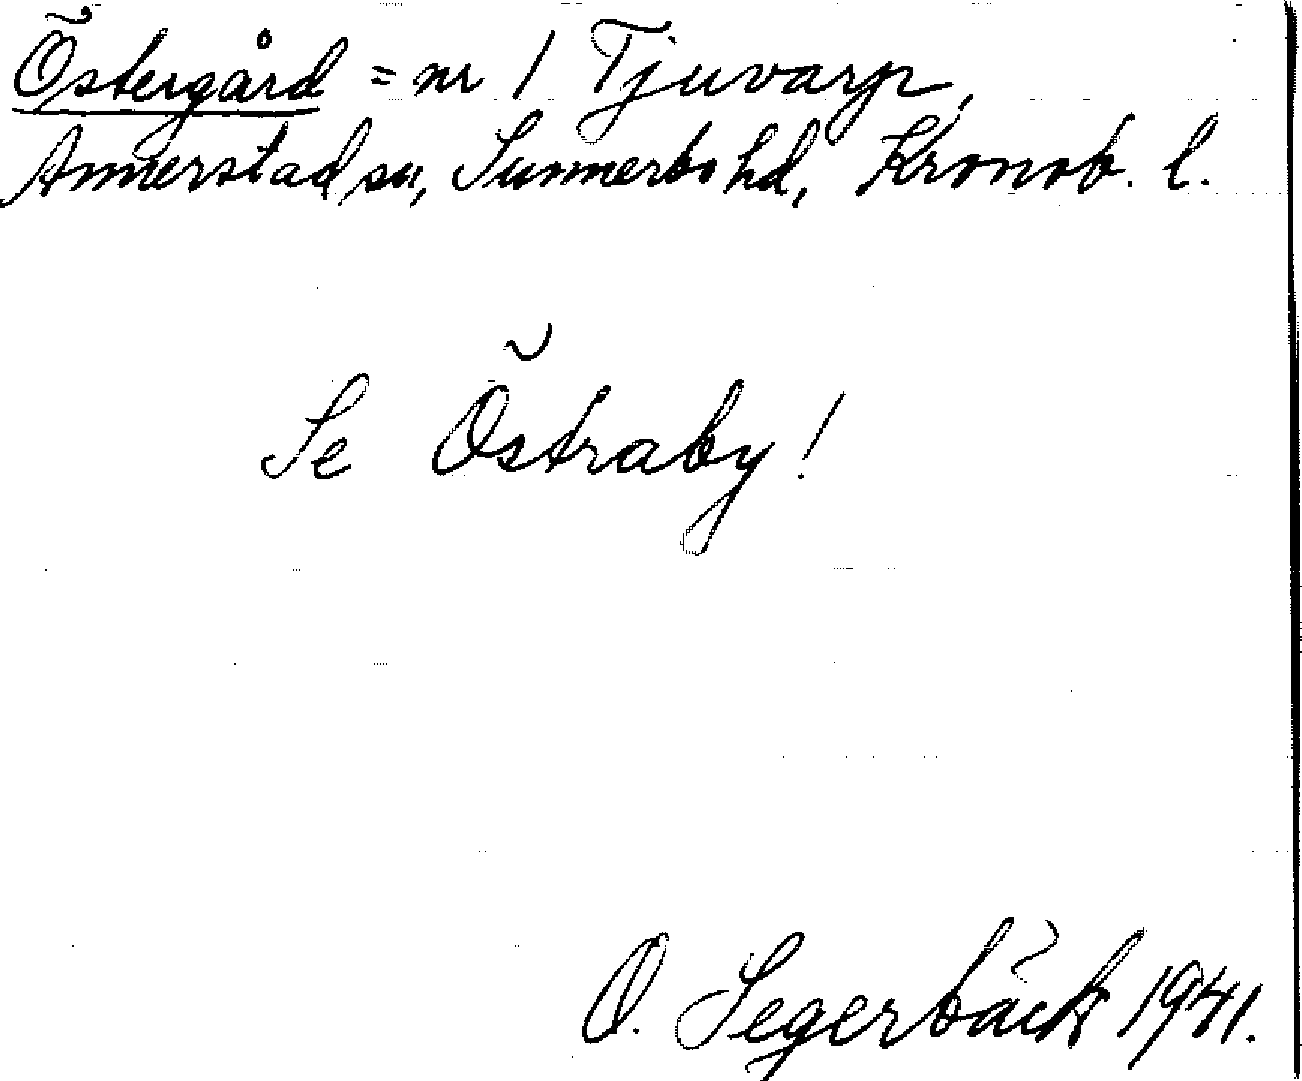 Östergård = nr 1 Tjuvarp,
Annerstad sn, Sunnerbo hd, Kronob. l.
Se Östraby!
O. Segerbäck 1941.